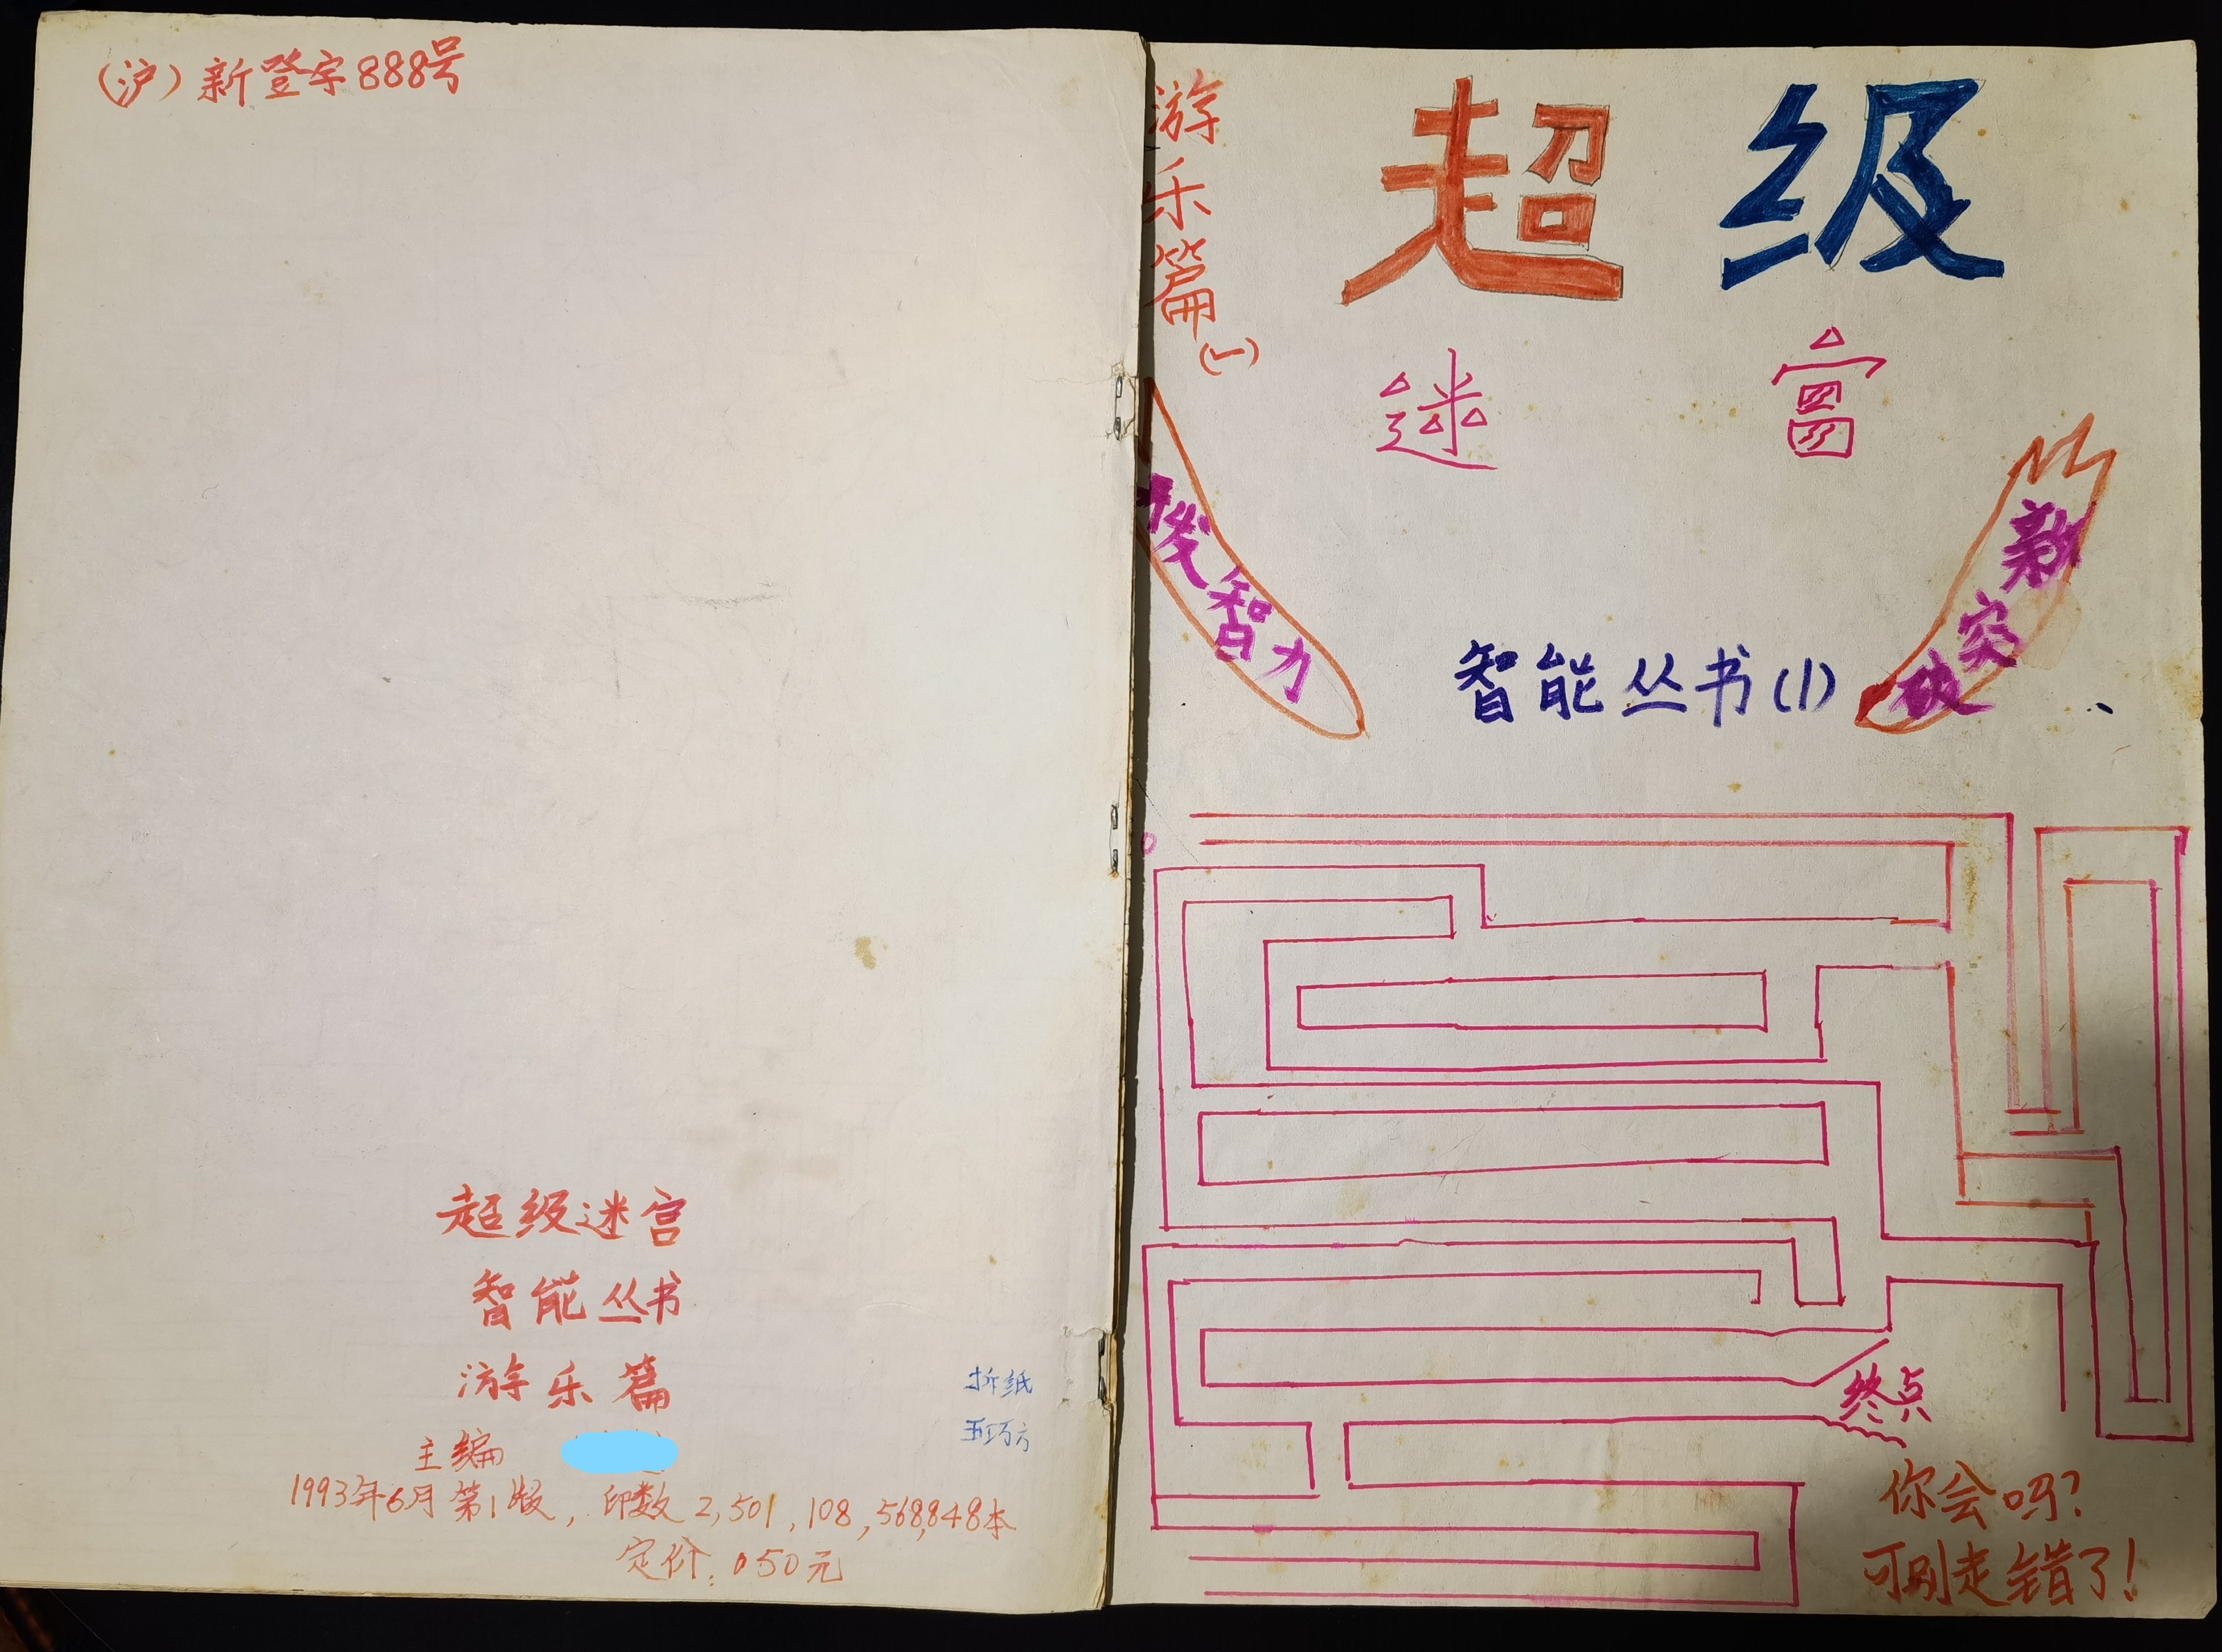 (沪)新登字888号
超级迷宫
智能丛书
游乐篇
主编
1993年6月第1版，印数2,501,108,568,848本
定价：0.50元
折纸
五巧方
游乐篇(一)
超级
迷宫
开发智力
新突破
智能丛书(1)
终点
你会吗?
可别走错了!